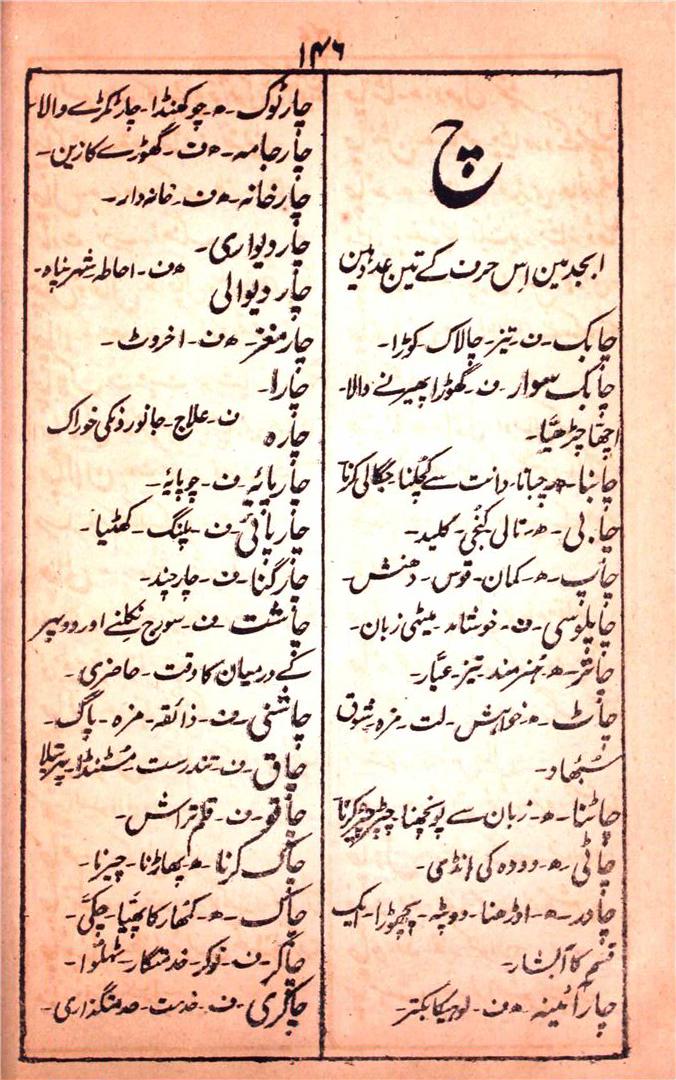 ۱۴۶
چ
ابجد مین اِس حرف کے تین عدد ہین
چابک۔ ف۔ تیز۔ چالاک۔ کوڑا۔
چابک سوار۔ ف۔ گھوڑا پھیرنے والا۔
اچھا چڑھیّا۔
چابنا۔ ھ۔ چبانا۔ دانت سے کُچلنا۔ جگالی کرنا
چابی۔ ھ۔ تالی۔ کُنجی۔ کلید۔
چاپ۔ ھ۔ کمان۔ قوس۔ دھنش۔
چاپلوسی۔ ف۔ خوشامد۔ میٹھی زبان۔
چاتر۔ ھ۔ ہنرمند۔ تیز۔ عیّار۔
چاٹ۔ ھ۔ خواہش۔ لت۔ مزہ۔ شوق
سُبھاد۔
چاٹنا۔ ھ۔ زبان سے پونچھنا۔ چپڑ چپڑ کرنا
چاٹی۔ ھ۔ دودہ کی ہانڈی۔
چادر۔ ھ۔ اوڈھنا۔ دوپٹہ۔ پچھوڑا۔ ایک
قسم کا آبشار۔
چار آئینہ۔ ھ ف۔ لوہیکا بکتر۔
چار ٹوک۔ ھ۔ چوکھنڈا۔ چار ٹکڑے والا۔
چار جامہ۔ ھ ف۔ گھوڑے کا زین۔
چار خانہ۔ ھ ف۔ خانہ دار۔
چار دیواری۔
چار دیوالی ھ ف۔ احاطہ۔ شہر پناہ۔
چار مغز۔ ھ ف۔ اخروٹ۔
چارا۔
چارہ ف۔ علاج۔ جانورونکی خوراک
چارپایۂ۔ ف۔ چوپایۂ۔
چارپائی۔ ف۔ پلنگ۔ کھٹیا۔
چارگنا۔ ف۔ چارچند۔
چاشت۔ ف۔ سورج نکلنے اور دوپہر
کے درمیان کا وقت۔ حاضری۔
چاشنی۔ ف۔ ذائقہ۔ مزہ۔ پاگ۔
چاق۔ ف۔ تندرست۔ مسٹنڈا۔
چاقو۔ ف۔ قلمتراش۔
چاک کرنا۔ ھ۔ پھاڑنا۔ چیرنا۔
چاک۔ ھ۔ کمھار کا پہیّا۔ چکّی۔
چاکر۔ ف۔ نوکر۔ خدمتگار۔ ٹہلوا۔
چاکری۔ ف۔ خدمت۔ خدمتگذاری۔